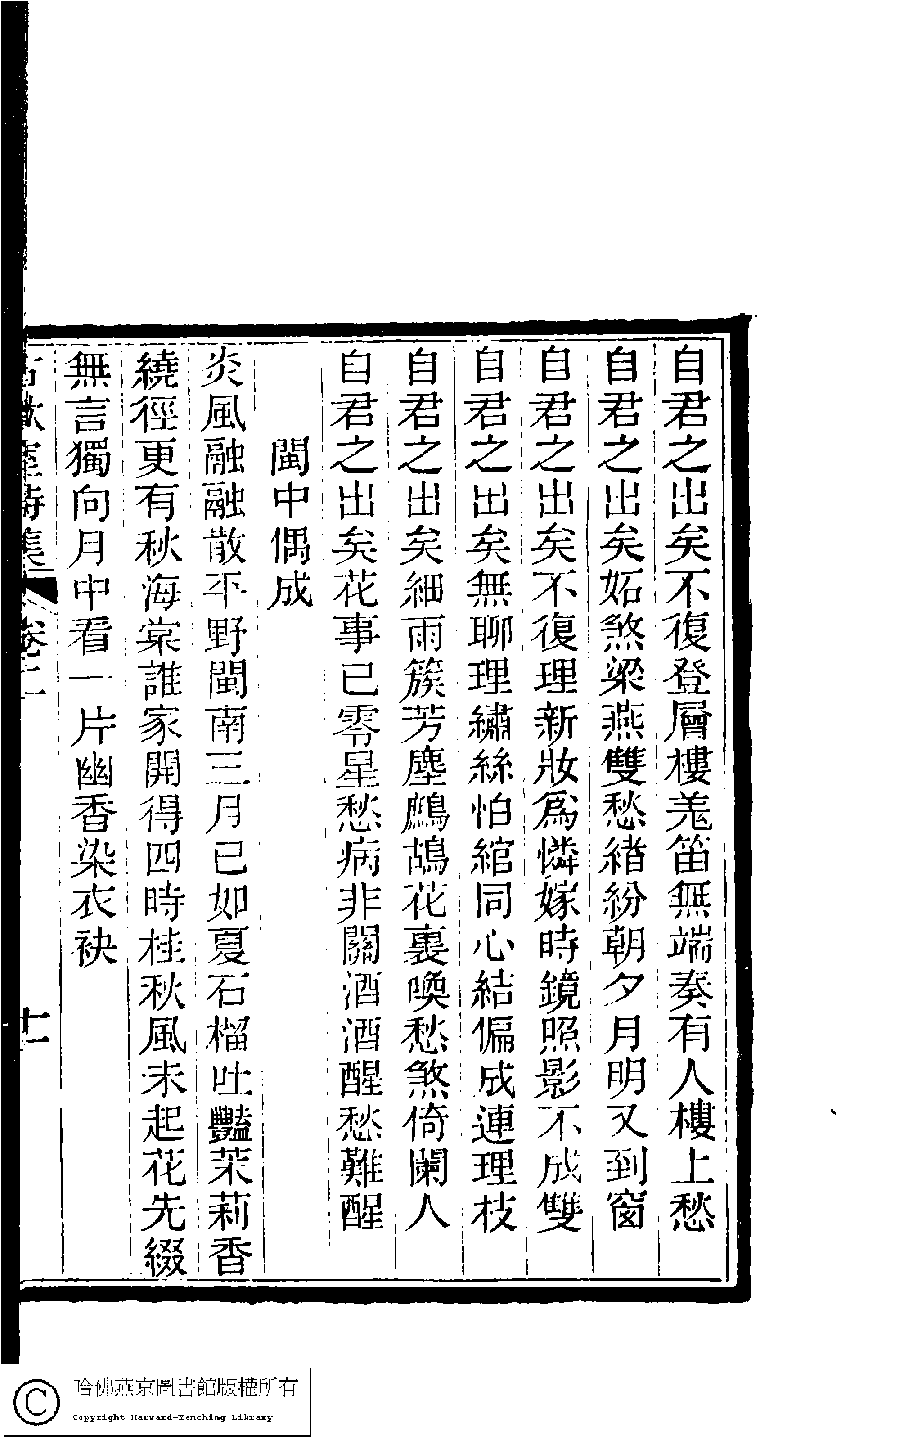 自君之出矣不復登層樓羌笛無端奏有人樓上愁
自君之出矣妬煞梁燕雙愁緖紛朝夕月明又到窗
自君之出矣不復理新妝爲憐嫁時鏡照影不成雙
自君之出矣無聊理繡絲怕綰同心結偏成連理枝
自君之出矣細雨簇芳塵鷓鴣花裏喚愁煞倚闌人
自君之出矣花事已零星愁病非關酒酒醒愁難醒
閩中偶成
炎風融融散平野閩南三月已如夏石榴吐豔茉莉香
繞徑更有秋海棠誰家開得四時桂秋風未起花先綴
無言獨向月中看一片幽香染衣袂
室詩集 卷二 十一
哈佛燕京圖書館版權所有
Copyright Harvard-Yenching Library